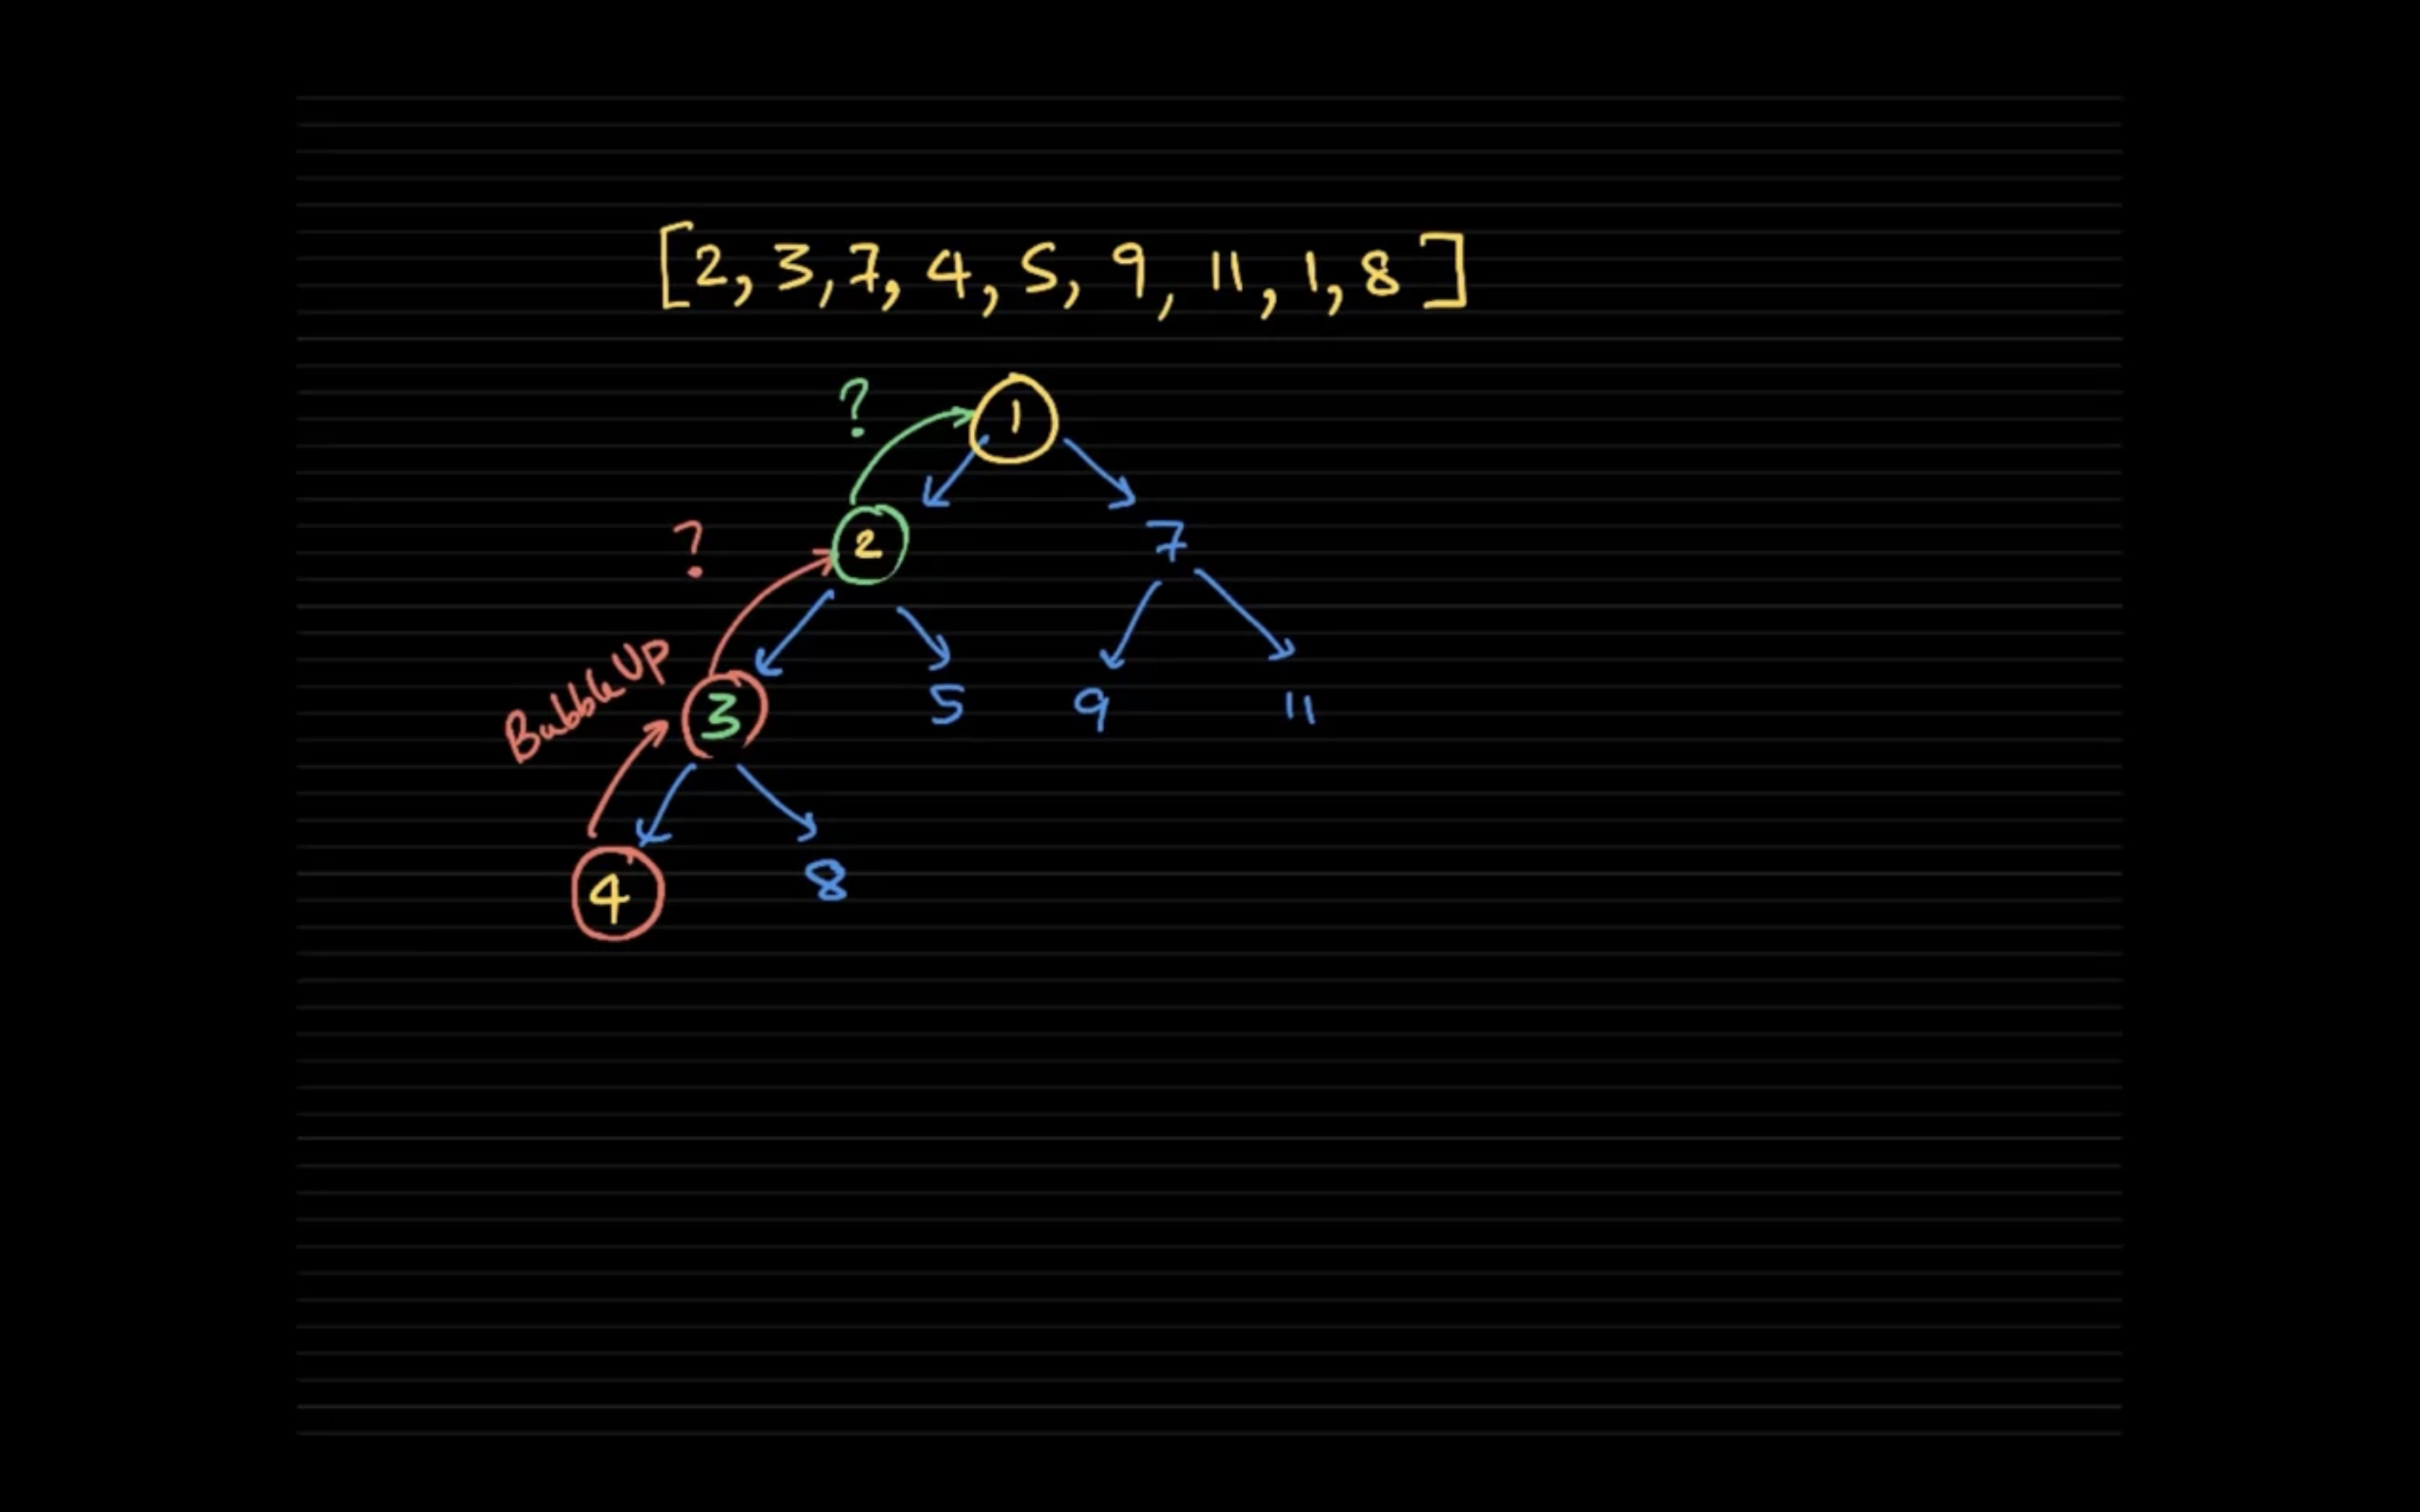 [2, 3, 7, 4, 5, 9, 11, 1, 8]
?
1
?
2
7
Bubble UP
3
5
9
11
4
8